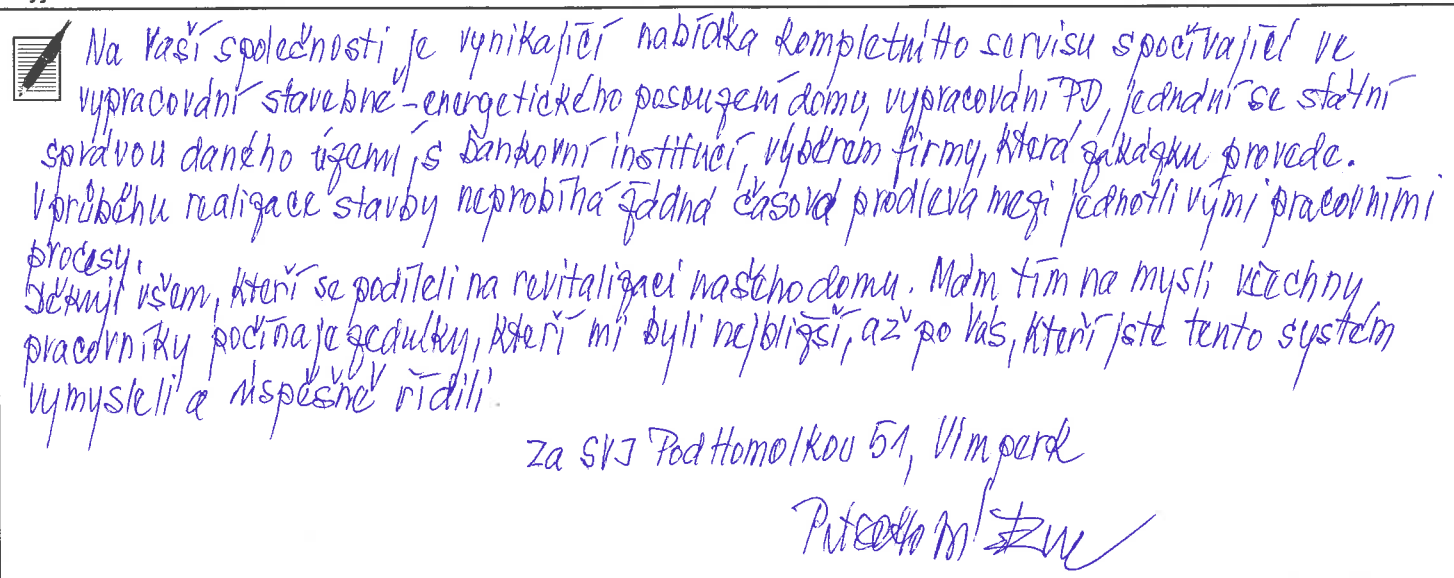 Na Vaší společnosti je vynikající nabídka kompletního servisu spočívající ve
vypracování stavebně-energetického posouzení domu, vypracování PD, jednání se státní
správou daného území, s bankovní institucí, výběrem firmy, která zakázku provede.
V průběhu realizace stavby neprobíhá žádná časová prodleva mezi jednotlivými pracovními
procesy.
Děkuji všem, kteří se podíleli na revitalizaci našeho domu. Mám tím na mysli všechny
pracovníky počínaje zedníky, kteří mi byli nejbližší, až po Vás, kteří jste tento systém
vymysleli a úspěšně řídili.
Za SVJ Pod Homolkou 51, Vimperk